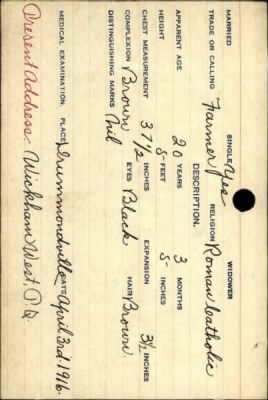 MARRIED SINGLE Yes WIDOWER
TRADE OR CALLING Farmer RELIGION Roman Catholic
DESCRIPTION.
APPARENT AGE 20 YEARS 3 MONTHS
HEIGHT 5 FEET 5 INCHES
CHEST MEASUREMENT 37 1/2 INCHES EXPANSION 3 1/2 INCHES
COMPLEXION Brown EYES Black HAIR Brown.
DISTINGUISHING MARKS Nil
MEDICAL EXAMINATION. PLACE Drummondville DATE April 3rd 1916.
Present Address. Wickham West, P.Q.